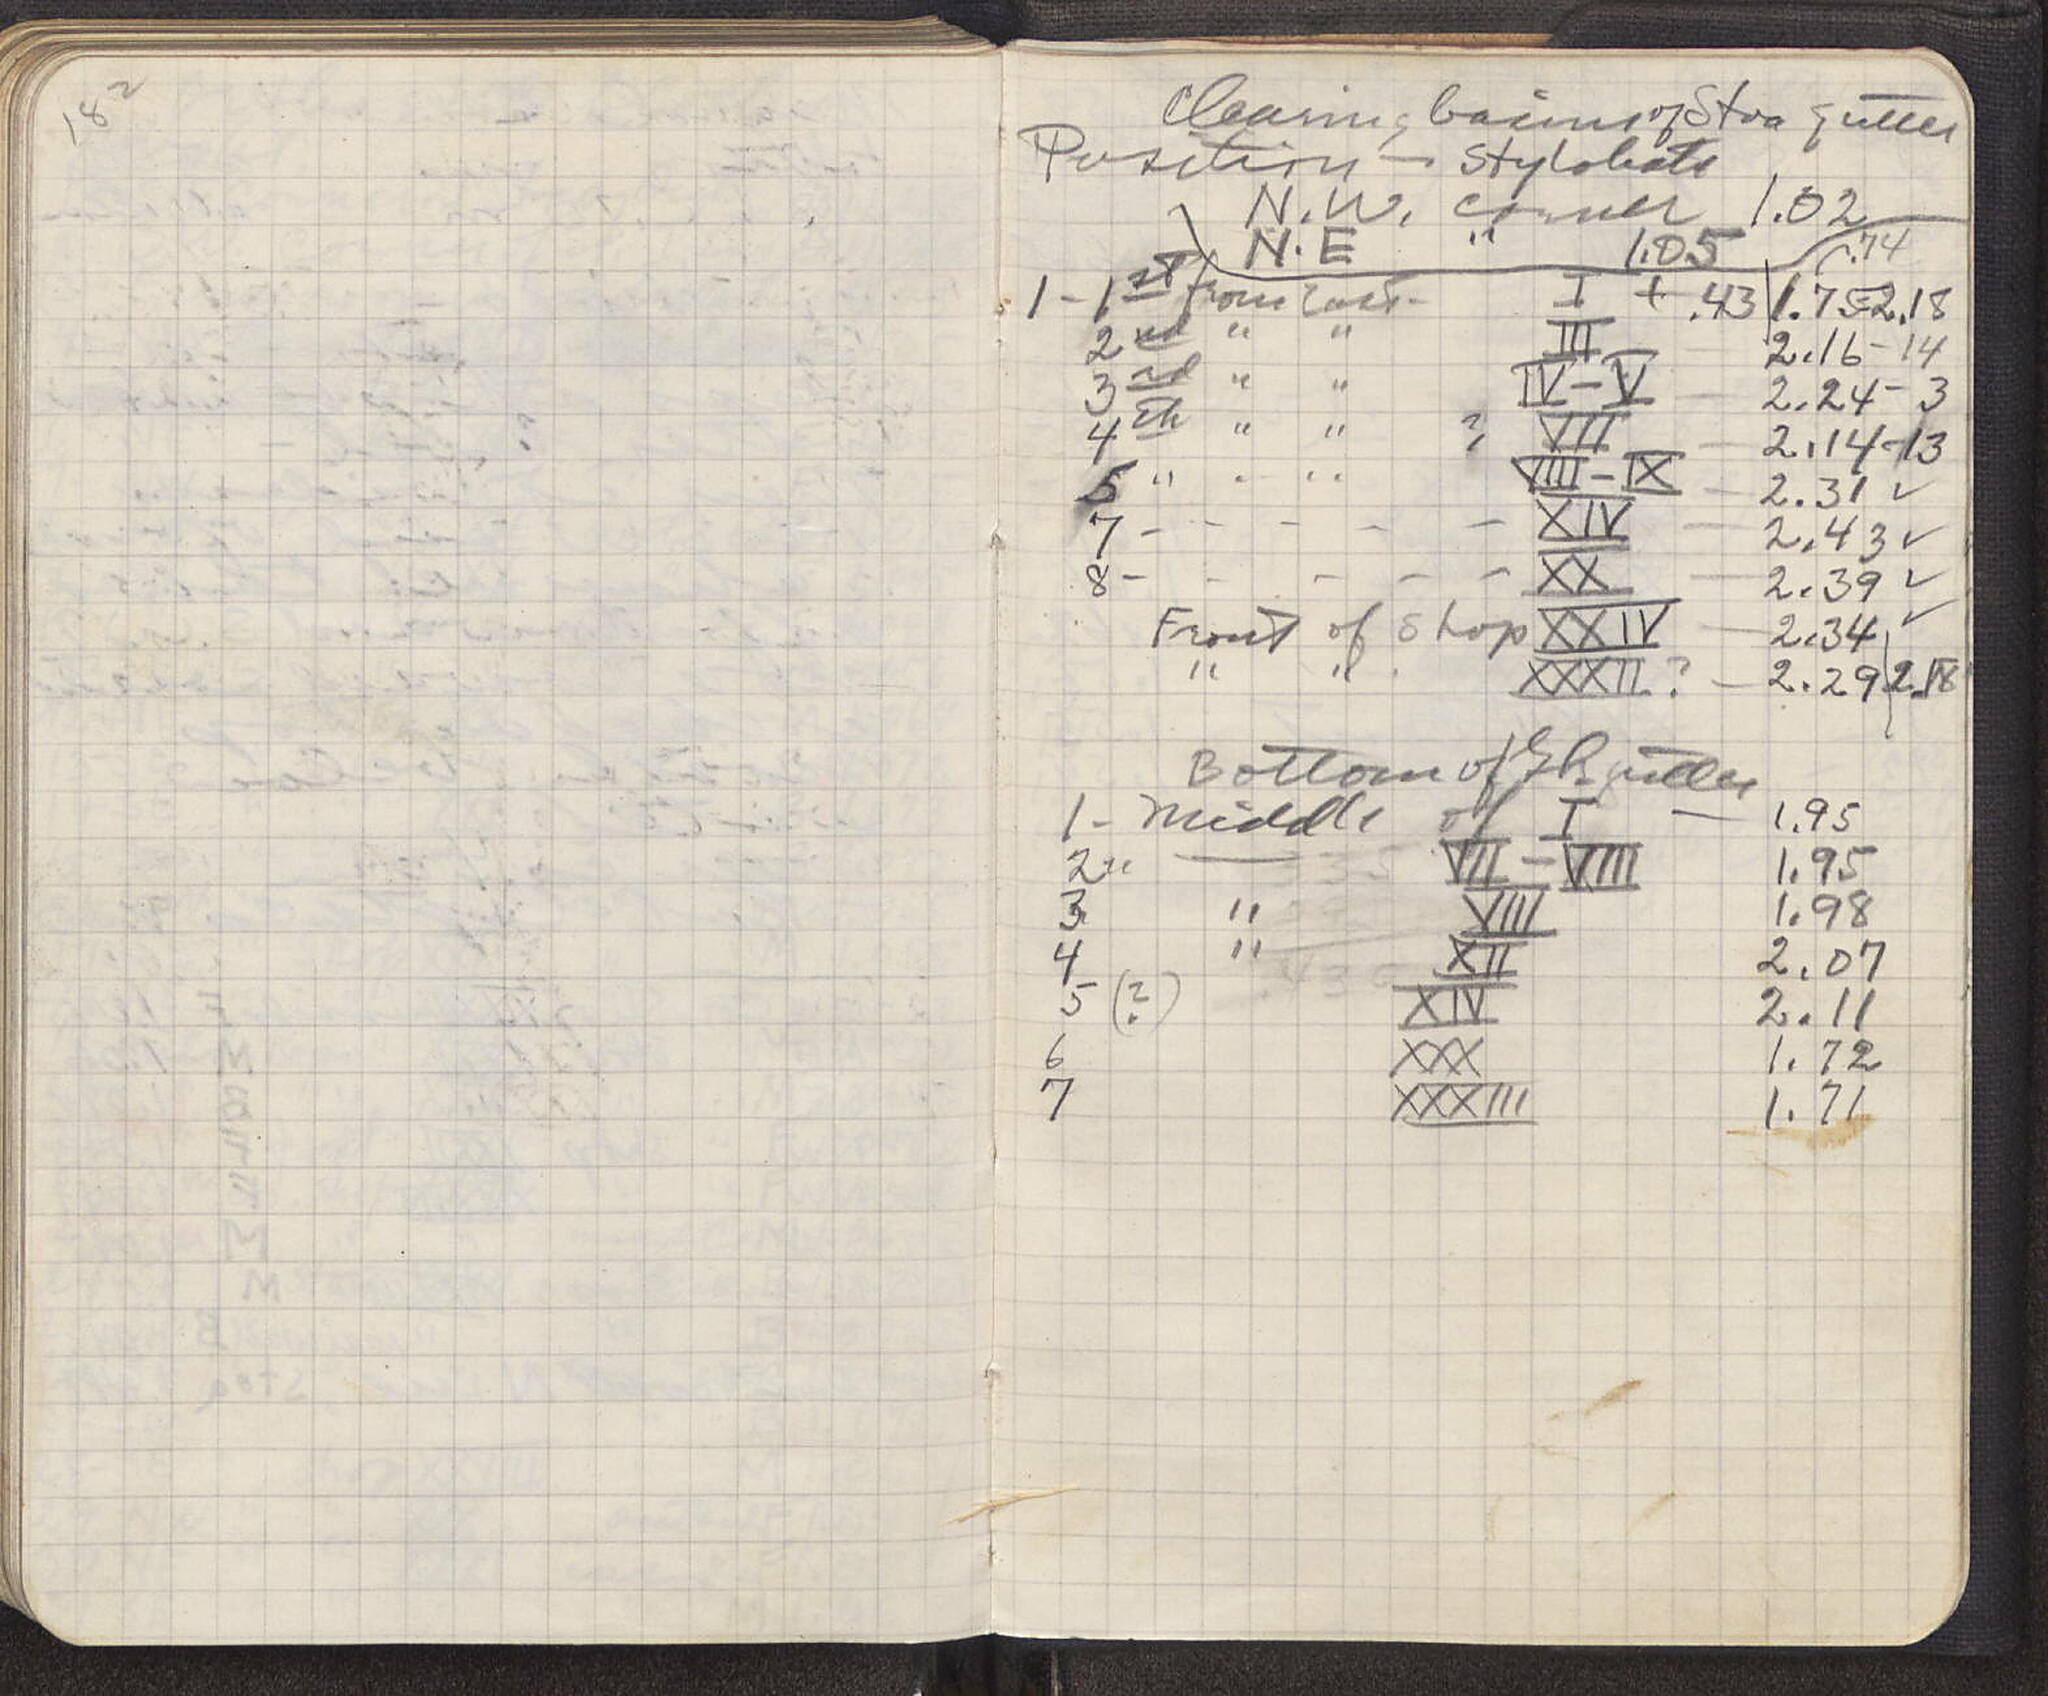 18²
Clearing basins of Stoa gutter
Position - Stylobate
N.W. corner 1.02
N.E " 1.05 .74
1 - 1st from East - I + .43 1.75=2.18
2nd " " III 2.16-14
3rd " " IV-V - 2.24-3
4th " " ? VII - 2.14-13
5 " " " VIII-IX - 2.31 ✓
7 - - - - - XIV - 2.43 ✓
8 - - - - - XX - 2.39 ✓
Front of Shop XXIV - 2.34 ✓
" " XXXII ? - 2.29 2.18
Bottom of Gk. gutter
1 - Middle of I - 1.95
2 " — VII - VIII 1.95
3 " VIII 1.98
4 " XII 2.07
5 (?) XIV 2.11
6 XXX 1.72
7 XXXIII 1.71